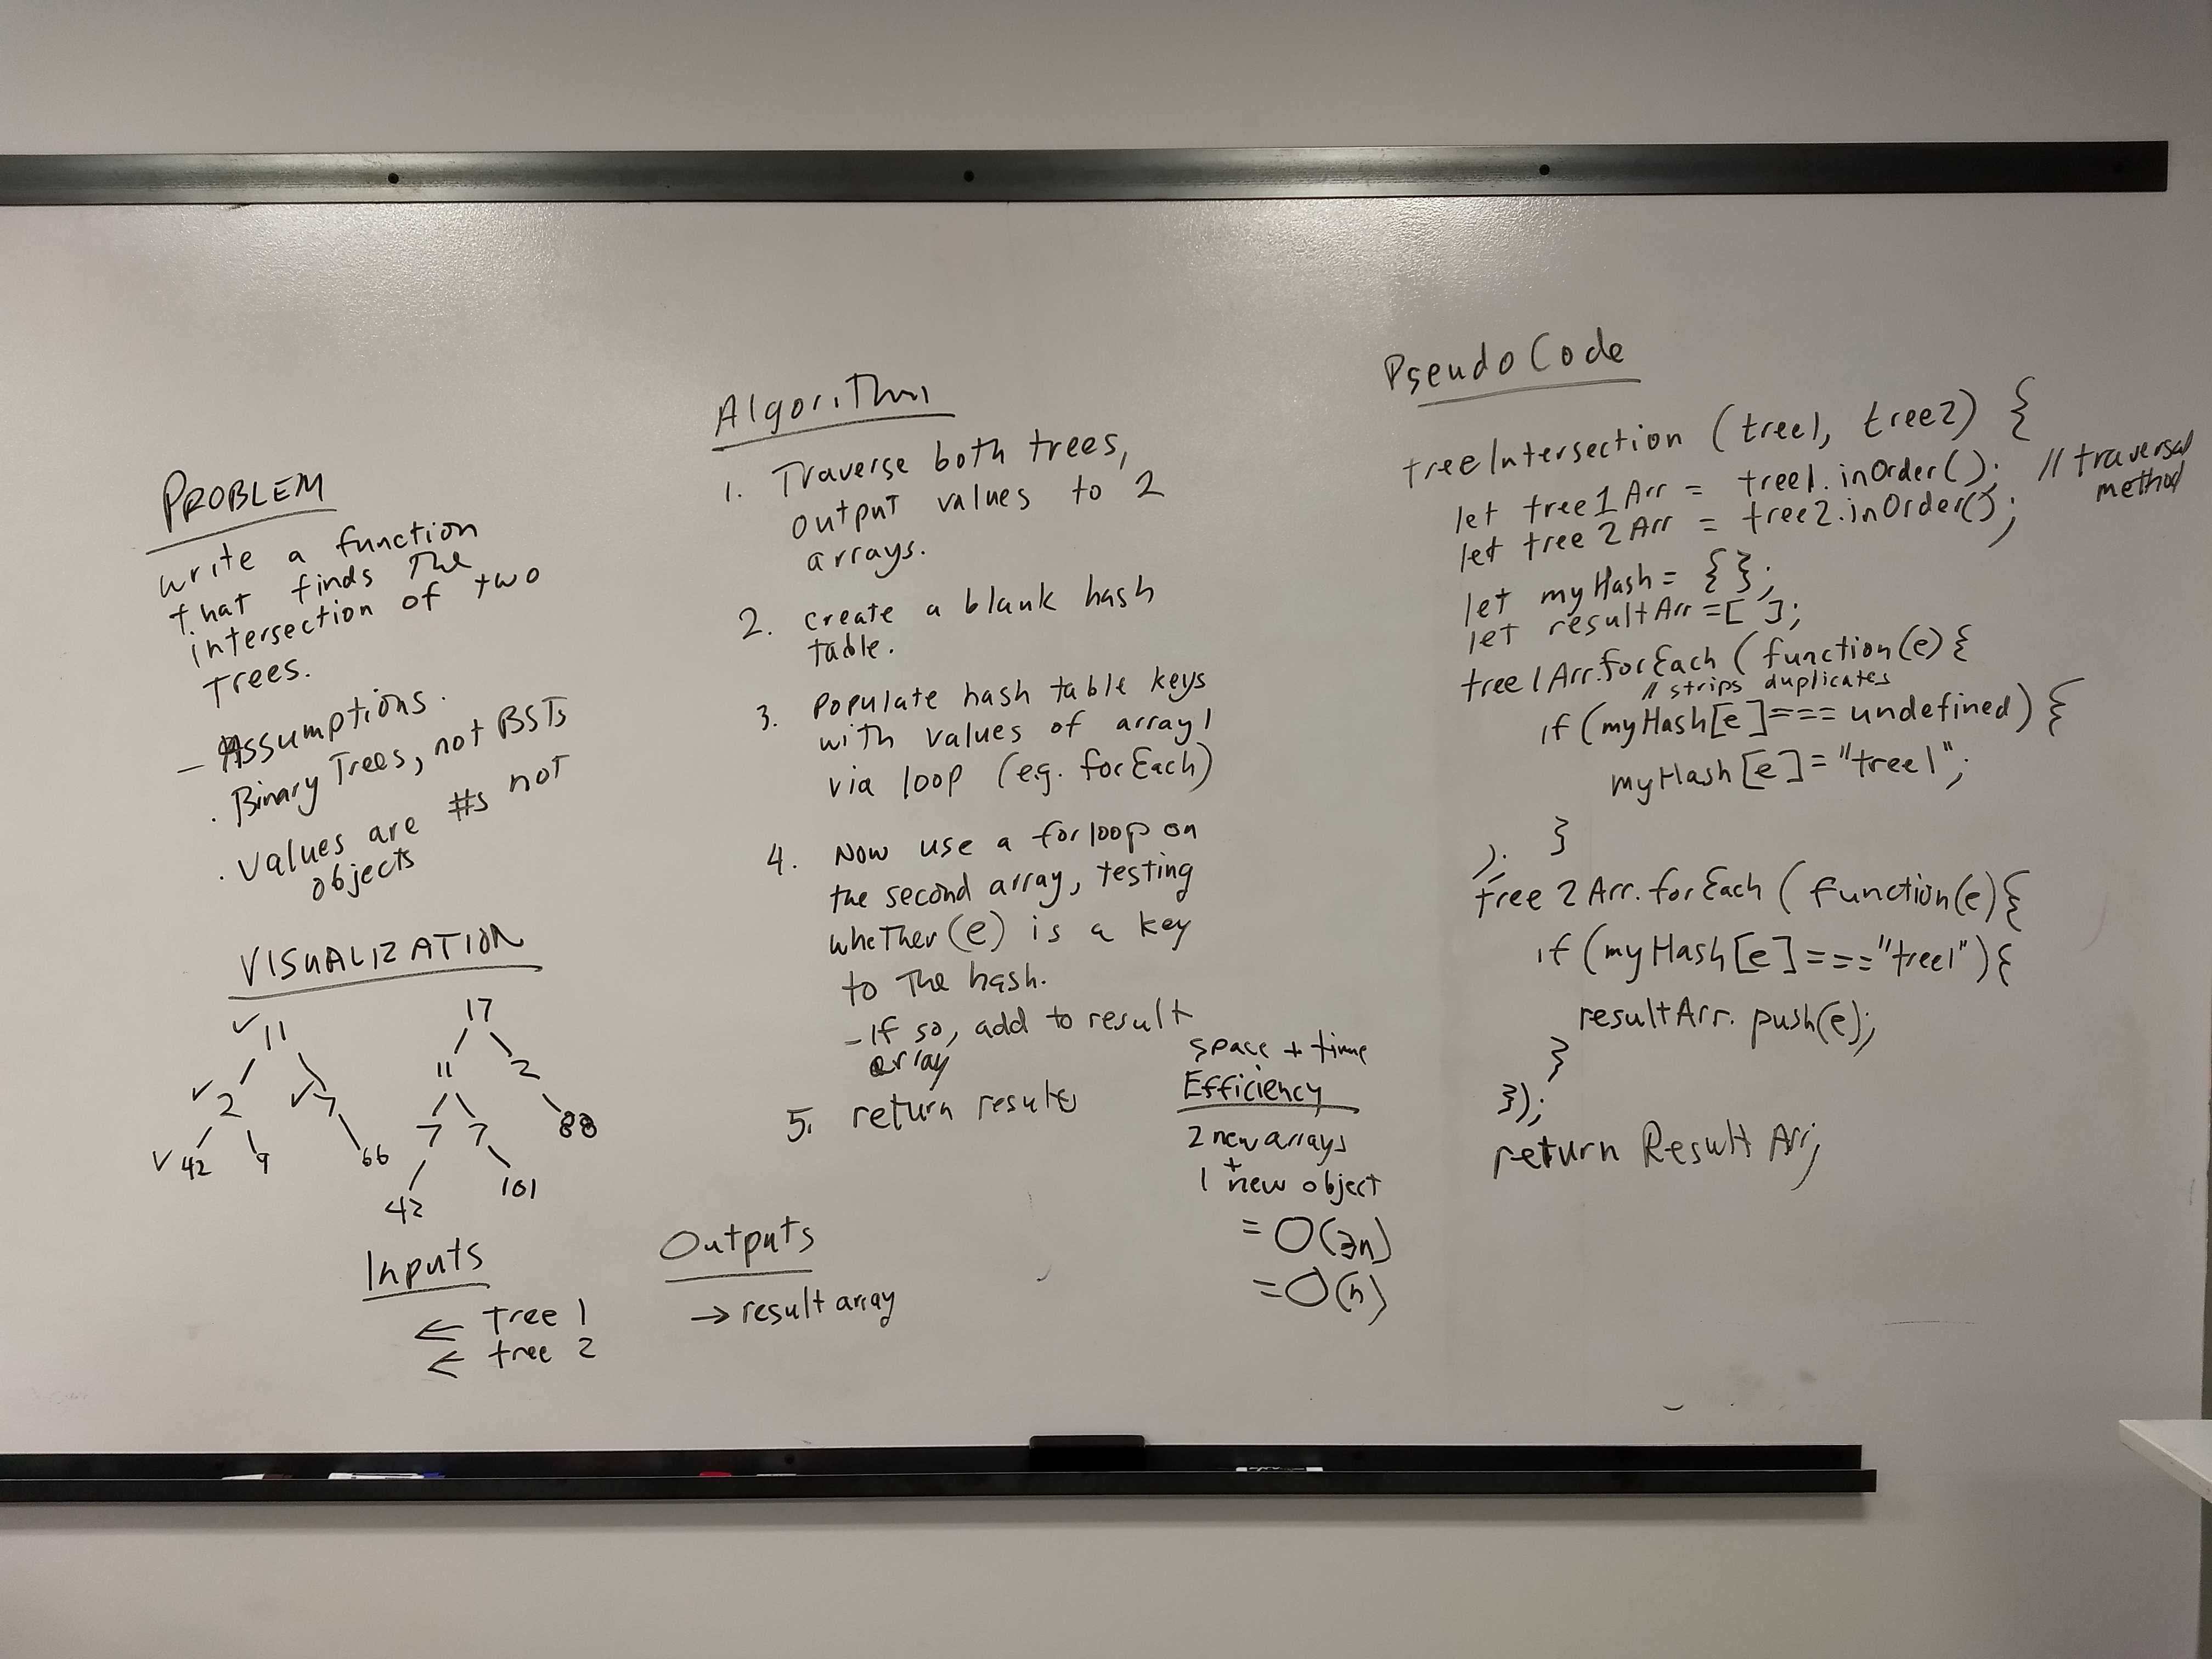 PROBLEM
write a function
that finds the
intersection of two
trees.
- Assumptions.
. Binary Trees, not BSTs
. values are #s not
objects
VISUALIZATION
✓ 11
✓ 2 ✓ 7
✓ 42 9 66
17
11 2
7 7 88
42 101
Inputs
← tree 1
← tree 2
Algorithm
1. Traverse both trees,
output values to 2
arrays.
2. create a blank hash
table.
3. Populate hash table keys
with values of array 1
via loop (e.g. forEach)
4. Now use a for loop on
the second array, testing
whether (e) is a key
to the hash.
- If so, add to result
array
5. return results
Outputs
→ result array
space + time
Efficiency
2 new arrays
+
1 new object
= O(3n)
= O(n)
Pseudo Code
treeIntersection (tree1, tree2) {
let tree1Arr = tree1.inOrder(); // traversal
method
let tree2Arr = tree2.inOrder();
let myHash = { };
let resultArr = [ ];
tree1Arr.forEach (function(e) {
// strips duplicates
if (myHash[e] === undefined) {
myHash[e] = "tree1";
}
);
tree2Arr.forEach (function(e) {
if (myHash[e] === "tree1") {
resultArr.push(e);
}
});
return Result Arr;